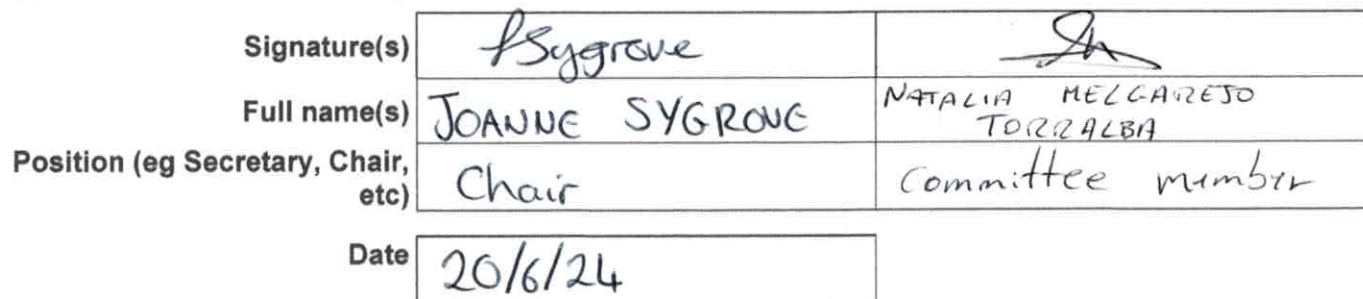 Signature(s) JSygrove
Full name(s) JOANNE SYGROVE NATALIA MELGAREJO
TORRALBA
Position (eg Secretary, Chair,
etc) Chair Committee member
Date 20/6/24